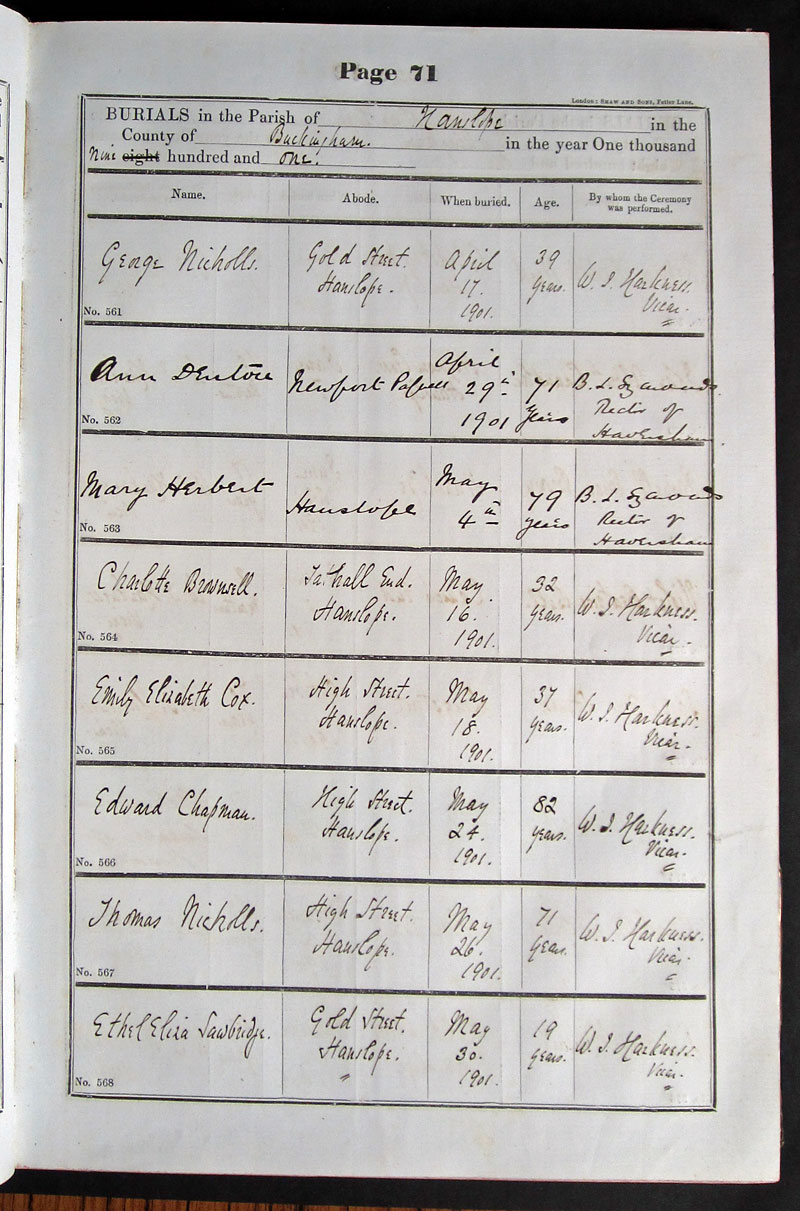 Page 71
London: SHAW AND SONS, Fetter Lane.
BURIALS in the Parish of Hanslope in the
County of Buckingham. in the year One thousand
Nine eight hundred and one.
Name. Abode. When buried. Age. By whom the Ceremony
was performed.
George Nicholls. Gold Street. April 39 W. J. Harkness.
Hanslope. 17. Years. Vicar.
No. 561 1901.
Ann Denton Newport Pagnell April 29th 71 B. L. Symonds
1901 Years Rector of
No. 562 Haversham
Mary Herbert Hanslope May 79 B. L. Symonds
4th Years Rector of
No. 563 Haversham
Charlotte Brownsell. Tathall End. May 32 W. J. Harkness.
Hanslope. 16. Years. Vicar.
No. 564 1901.
Emily Elizabeth Cox. High Street. May 37 W. J. Harkness.
Hanslope. 18. Years. Vicar.
No. 565 1901.
Edward Chapman. High Street. May 82 W. J. Harkness.
Hanslope. 24. Years. Vicar.
No. 566 1901.
Thomas Nicholls. High Street. May 71 W. J. Harkness.
Hanslope. 26. Years. Vicar.
No. 567 1901.
Ethel Eliza Sawbridge. Gold Street. May 19 W. J. Harkness.
Hanslope. 30. Years. Vicar.
No. 568 1901.